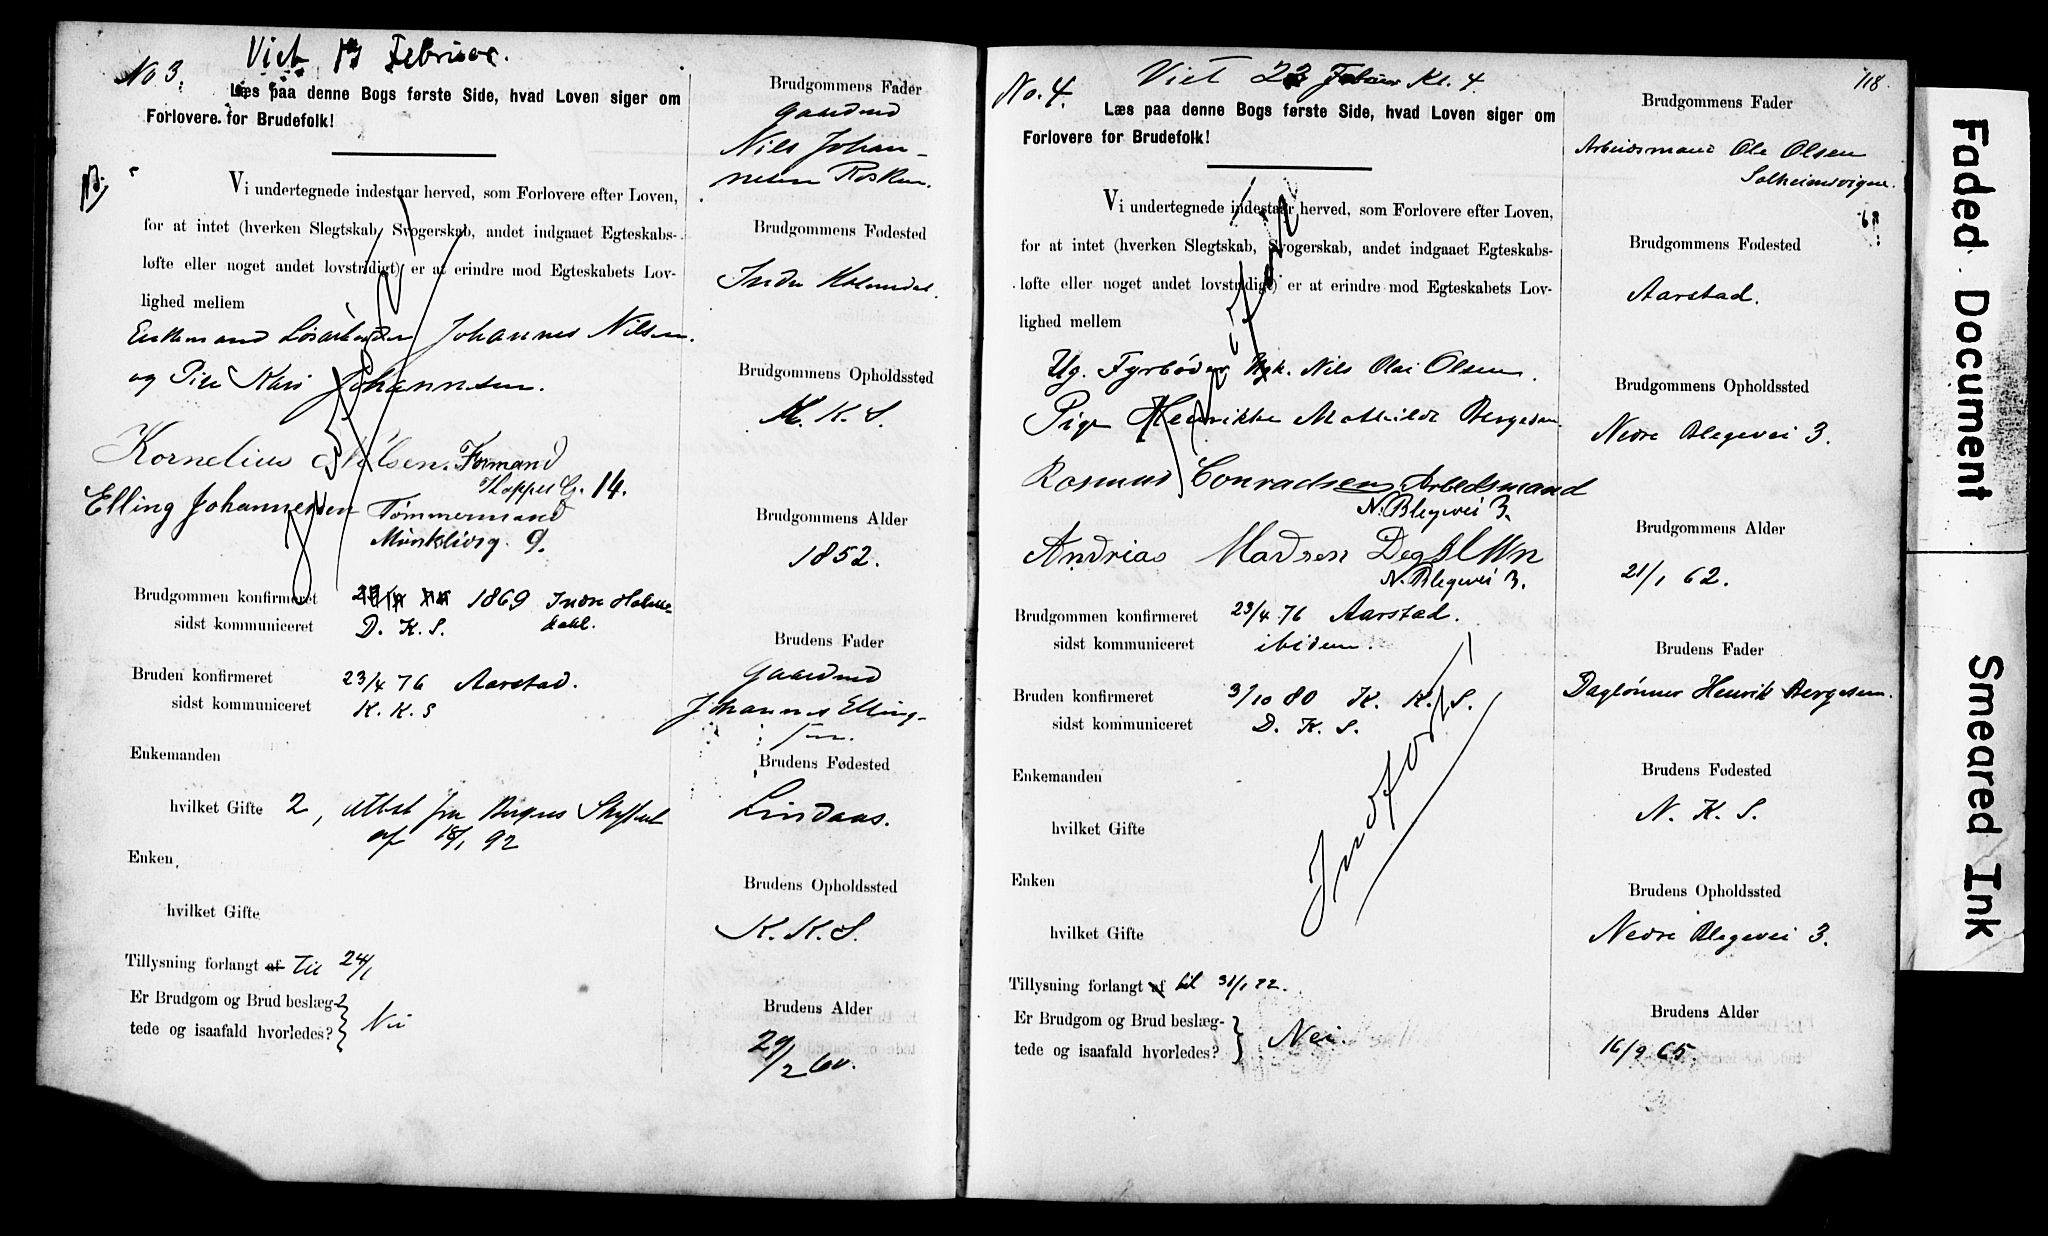 No 3.
Viet 17 Februar.
Læs paa denne Bogs første Side, hvad Loven siger om
Forlovere for Brudefolk!
Vi undertegnede indestaar herved, som Forlovere efter Loven,
for at intet (hverken Slegtskab, Svogerskab, andet indgaaet Egteskabs-
løfte eller noget andet lovstridigt) er at erindre mod Egteskabets Lov-
lighed mellem
Enkemand Løsarbeider Johannes Nilsen.
og Pige Kari Johannesen.
Kornelius Nilsen. Formand
14.
Elling Johannessen Tømmermand
Munklivsg. 9.
Brudgommen konfirmeret 1869 Indre Holme-
dahl.
sidst kommuniceret D. K. S.
Bruden konfirmeret 23/4 76 Aarstad.
sidst kommuniceret K. K. S
Enkemanden
hvilket Gifte 2, attest fra Bergens Skifteret
af 18/1 92
Enken
hvilket Gifte
Tillysning forlangt af til 24/1
Er Brudgom og Brud beslæg-
tede og isaafald hvorledes? Nei
Brudgommens Fader
Gaardmd
Nils Johan-
nesen
Brudgommens Fødested
Indre Holmedal.
Brudgommens Opholdssted
K. S.
Brudgommens Alder
1852.
Brudens Fader
Gaardmd
Johannes Elling-
sen.
Brudens Fødested
Lindaas.
Brudens Opholdssted
K. K. S.
Brudens Alder
29/2 60.
No. 4.
Viet 23 Februar Kl. 4.
118.
Læs paa denne Bogs første Side, hvad Loven siger om
Forlovere for Brudefolk!
Vi undertegnede indestaar herved, som Forlovere efter Loven,
for at intet (hverken Slegtskab, Svogerskab, andet indgaaet Egteskabs-
løfte eller noget andet lovstridigt) er at erindre mod Egteskabets Lov-
lighed mellem
Ug. Fyrbøder Nils Olai Olsen.
Pige Henrikke Mathilde Bergesen
Rasmus Conradsen Arbedsmand
N. Blegevei 3.
Andrias Madsen
N. Blegevei 3.
Brudgommen konfirmeret 23/4 76 Aarstad.
sidst kommuniceret ibidem.
Bruden konfirmeret 3/10 80 K. K. S.
sidst kommuniceret D. K. S.
Indført
Enkemanden
hvilket Gifte
Enken
hvilket Gifte
Tillysning forlangt af til 31/1 92.
Er Brudgom og Brud beslæg-
tede og isaafald hvorledes? Nei.
Brudgommens Fader
Arbeidsmand Ole Olsen
Solheimsvigen.
Brudgommens Fødested
Aarstad.
Brudgommens Opholdssted
Nedre Blegevei 3.
Brudgommens Alder
21/1 62.
Brudens Fader
Dagtønner Henrik Bergesen.
Brudens Fødested
N. K. S.
Brudens Opholdssted
Nedre Blegevei 3.
Brudens Alder
16/9 65.
Faded Document
Smeared Ink